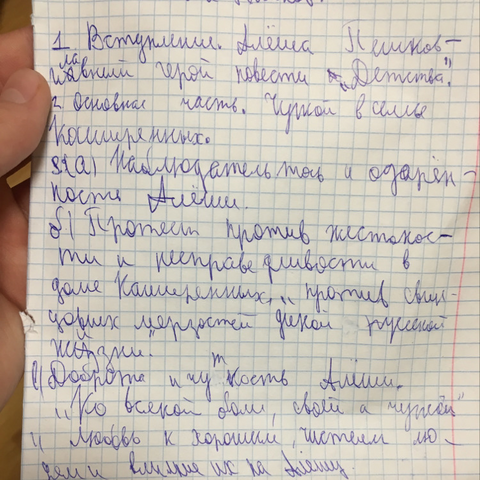 1 Вступление. Алёша Пешков-
главный герой повести "Детства."
2 основная часть. Чужой в семье
Каширенных.
а) Наблюдательтось и одарён-
ности Алёши.
б) Протест против жестокос-
ти и несправедливости в
доме Каширенных, „против свинцовых
мерзостей дикой русской
жизни."
в) Доброта и чуткость Алёши.
„Ко всякой боли, своей а чужой"
„ любовь к хорошим, чистем лю-
дем и влияние их на Алёшу.